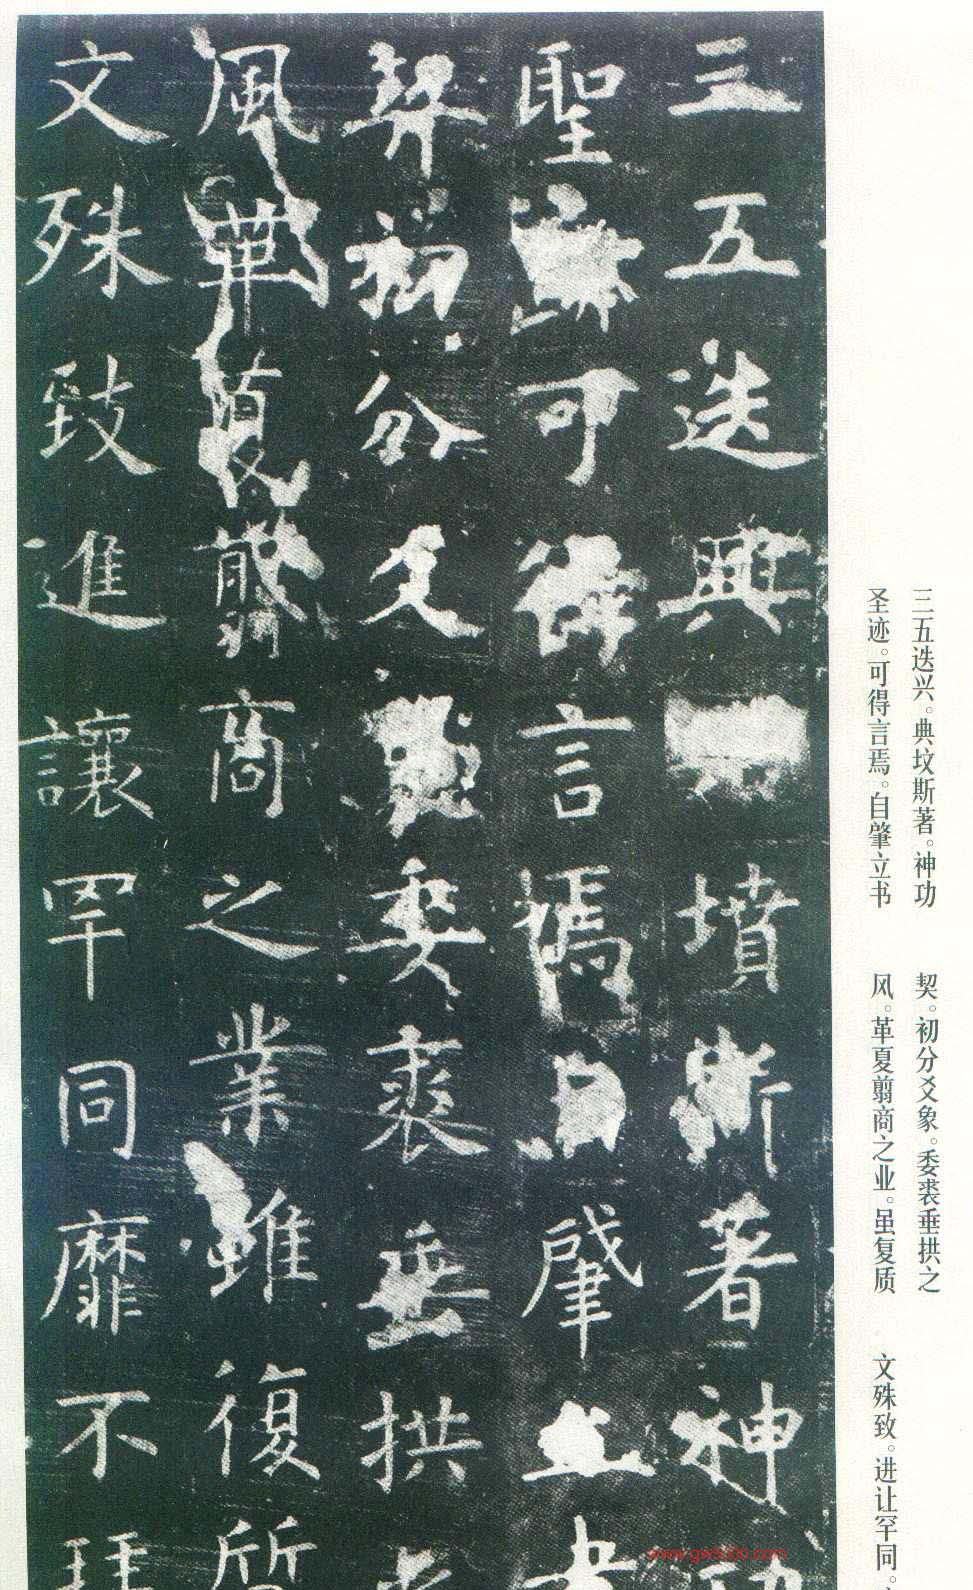 三五迭兴。典坟斯著。神功
圣迹。可得言焉。自肇立书
契。初分爻象。委裘垂拱之
风。革夏翦商之业。虽复质
文殊致。进让罕同。
三五迭興墳斯著神
聖可得言焉自肇立書
契初分爻象委裘垂拱
風革夏翦商之業雖復質
文殊致進讓罕同靡不